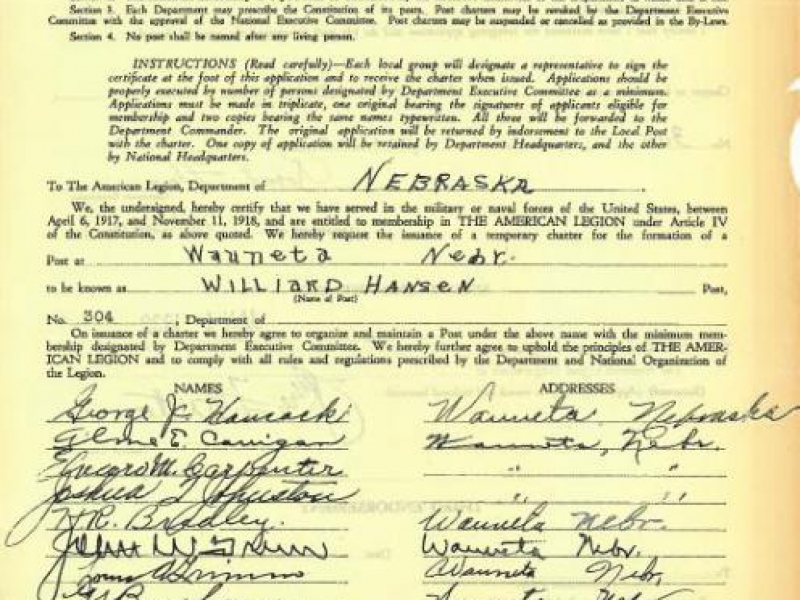 Section 3. Each Department may prescribe the Constitution of its posts. Post charters may be revoked by the Department Executive
Committee with the approval of the National Executive Committee. Post charters may be suspended or cancelled as provided in the By-Laws.
Section 4. No post shall be named after any living person.
INSTRUCTIONS (Read carefully)—Each local group will designate a representative to sign the
certificate at the foot of this application and to receive the charter when issued. Applications should be
properly executed by number of persons designated by Department Executive Committee as a minimum.
Applications must be made in triplicate, one original bearing the signatures of applicants eligible for
membership and two copies bearing the same names typewritten. All three will be forwarded to the
Department Commander. The original application will be returned by indorsement to the Local Post
with the charter. One copy of application will be retained by Department Headquarters, and the other
by National Headquarters.
To The American Legion, Department of NEBRASKA
We, the undersigned, hereby certify that we have served in the military or naval forces of the United States, between
April 6, 1917, and November 11, 1918, and are entitled to membership in THE AMERICAN LEGION under Article IV
of the Constitution, as above quoted. We hereby request the issuance of a temporary charter for the formation of a
Post at Wauneta Nebr.
to be known as WILLIARD HANSEN Post,
(Name of Post)
No. 304, Department of
On issuance of a charter we hereby agree to organize and maintain a Post under the above name with the minimum mem-
bership designated by Department Executive Committee. We hereby further agree to uphold the principles of THE AMER-
ICAN LEGION and to comply with all rules and regulations prescribed by the Department and National Organization of
the Legion.
NAMES ADDRESSES
George J. Hancock Wauneta Nebraska
E. Carrigan Wauneta, Nebr.
M. Carpenter " "
Joshua Johnston " "
H. R. Bradley. Wauneta Nebr.
Wauneta Nebr.
Wauneta Nebr.